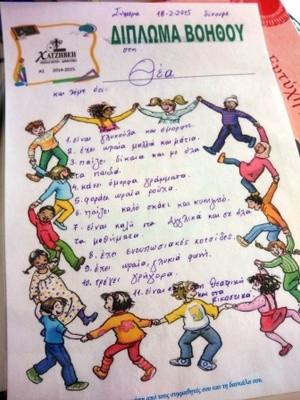 Σήμερα 18-2-2015
ΧΑΤΖΗΒΕΗ
ΔΙΠΛΩΜΑ ΒΟΗΘΟΥ
Α1 2014-2015
στη
Θέα
και λέμε ότι:
1. είναι γλυκούλα και όμορφη.
2. έχει ωραία μαλλιά και μάτια.
3. παίζει δίκαια και με όλα
τα παιδιά.
4. κάνει όμορφα γράμματα.
5. φοράει ωραία ρούχα.
6. παίζει καλό σκάκι και κυνηγητό.
7. είναι καλή στα Αγγλικά και σε όλα
τα μαθήματα.
8. έχει εντυπωσιακές κοτσίδες.
9. έχει ωραία, γλυκιά φωνή.
10. τρέχει γρήγορα.
11. είναι καλή στη Θεατρική
και στα
εικαστικά
από τους συμμαθητές σου και τη δασκάλα σου.